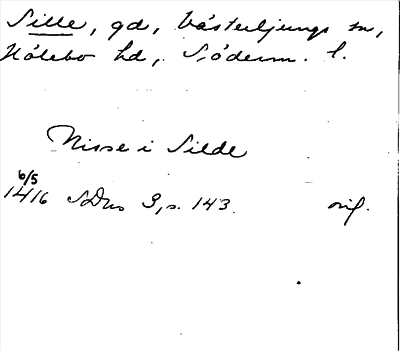 Sille, gd, Västerljungs sn,
Hölebo hd, Söderm. l.
Nisse i Silde
6/5
1416 SDns 3, s. 143. orig.